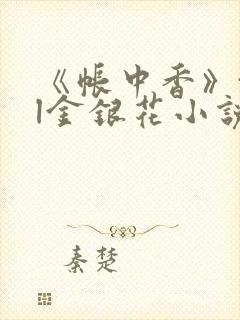 《帐中香》
|金银花小说
秦楚